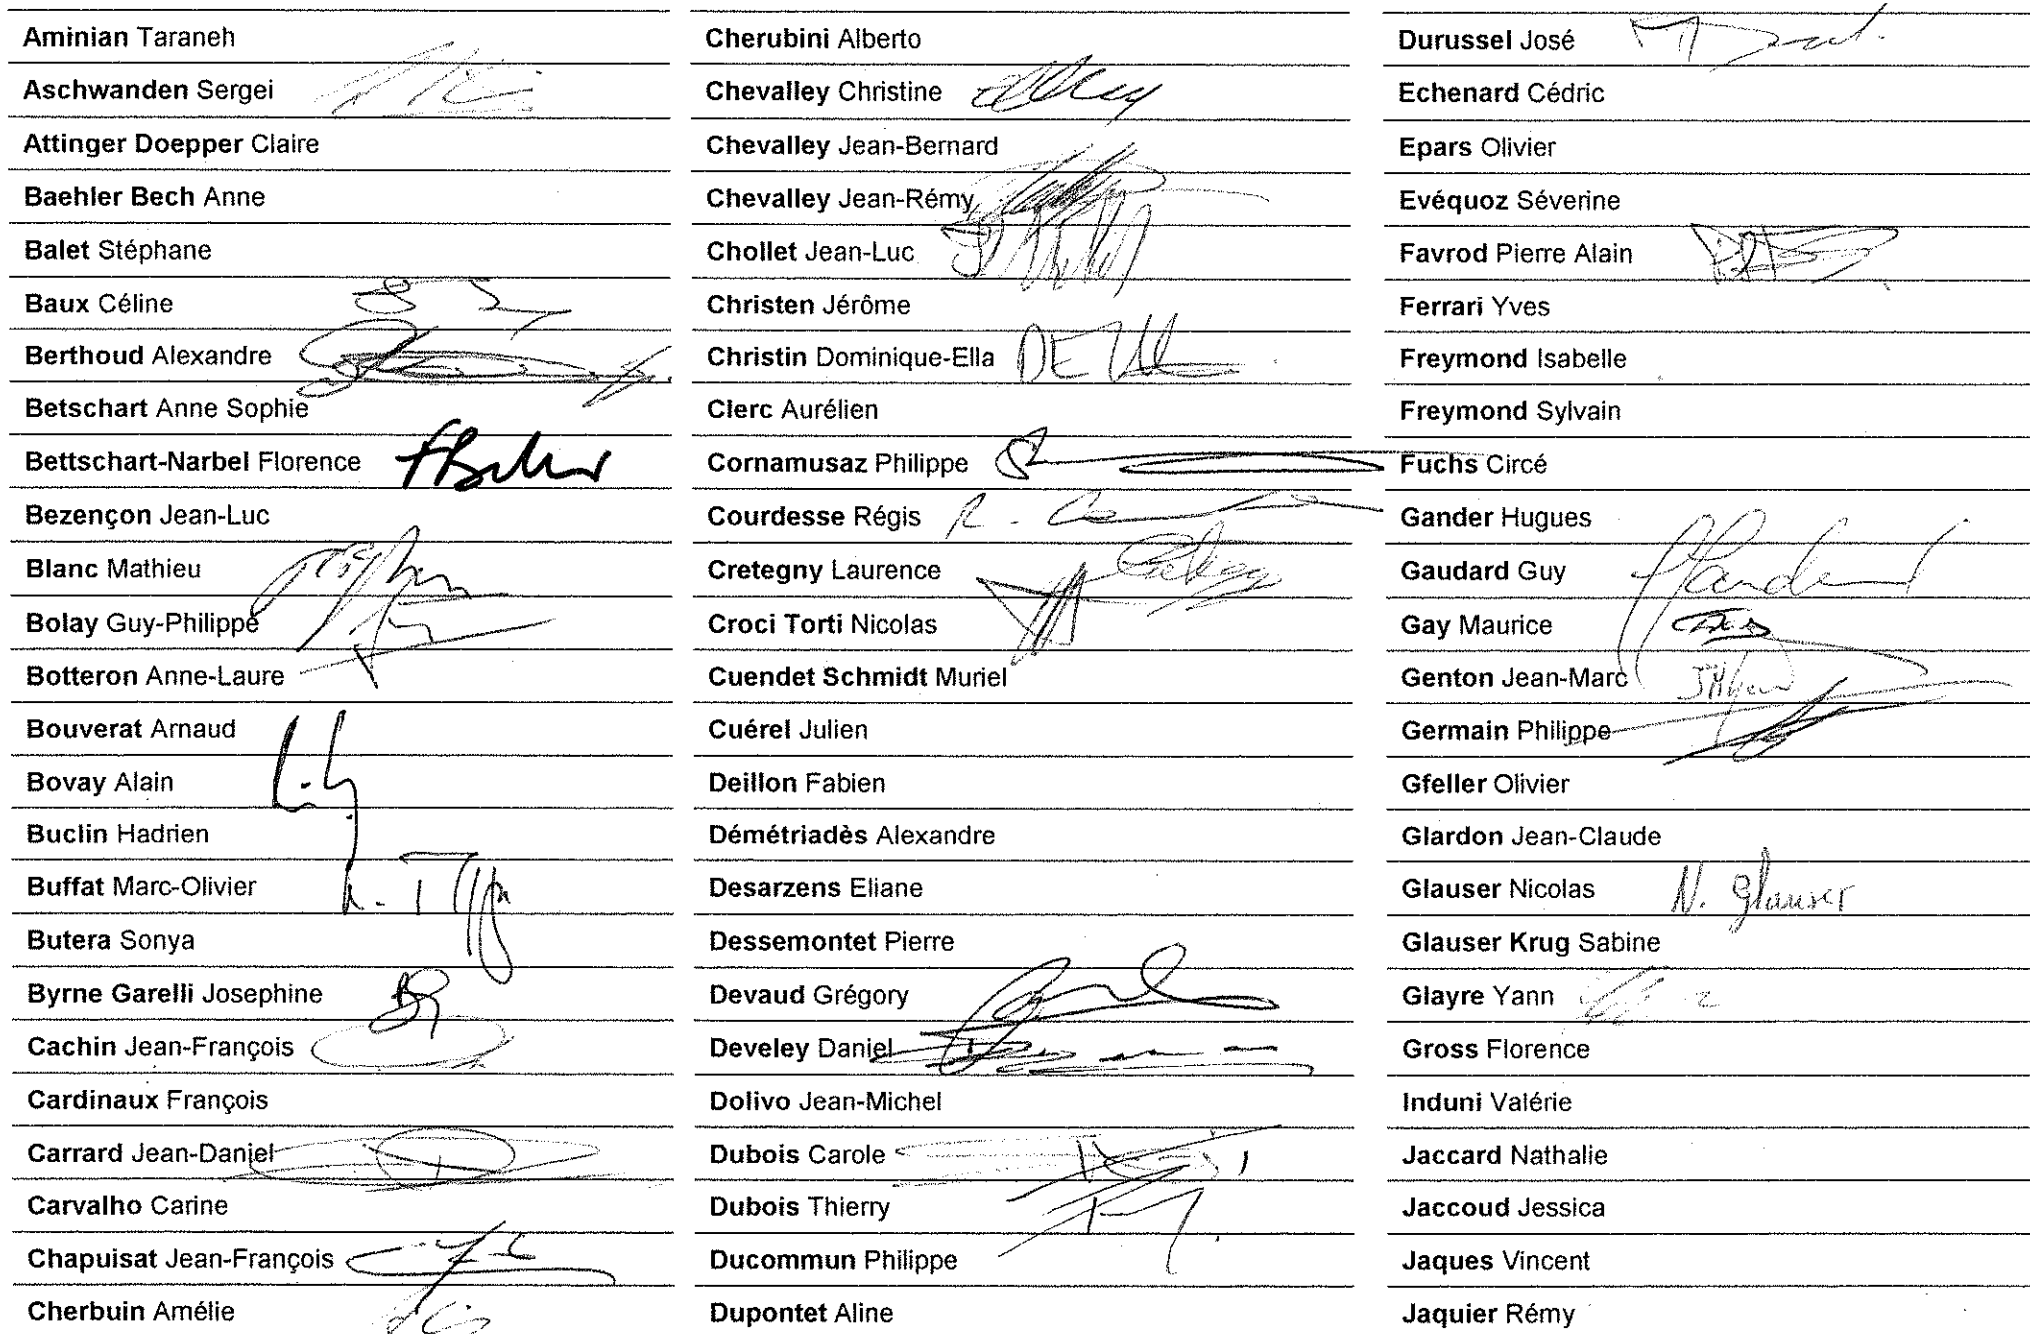 Aminian Taraneh
Aschwanden Sergei
Attinger Doepper Claire
Baehler Bech Anne
Balet Stéphane
Baux Céline
Berthoud Alexandre
Betschart Anne Sophie
Bettschart-Narbel Florence
Bezençon Jean-Luc
Blanc Mathieu
Bolay Guy-Philippe
Botteron Anne-Laure
Bouverat Arnaud
Bovay Alain
Buclin Hadrien
Buffat Marc-Olivier
Butera Sonya
Byrne Garelli Josephine
Cachin Jean-François
Cardinaux François
Carrard Jean-Daniel
Carvalho Carine
Chapuisat Jean-François
Cherbuin Amélie
Cherubini Alberto
Chevalley Christine
Chevalley Jean-Bernard
Chevalley Jean-Rémy
Chollet Jean-Luc
Christen Jérôme
Christin Dominique-Ella
Clerc Aurélien
Cornamusaz Philippe
Courdesse Régis
Cretegny Laurence
Croci Torti Nicolas
Cuendet Schmidt Muriel
Cuérel Julien
Deillon Fabien
Démétriadès Alexandre
Desarzens Eliane
Dessemontet Pierre
Devaud Grégory
Develey Daniel
Dolivo Jean-Michel
Dubois Carole
Dubois Thierry
Ducommun Philippe
Dupontet Aline
Durussel José
Echenard Cédric
Epars Olivier
Evéquoz Séverine
Favrod Pierre Alain
Ferrari Yves
Freymond Isabelle
Freymond Sylvain
Fuchs Circé
Gander Hugues
Gaudard Guy
Gay Maurice
Genton Jean-Marc
Germain Philippe
Gfeller Olivier
Glardon Jean-Claude
Glauser Nicolas N. Glauser
Glauser Krug Sabine
Glayre Yann
Gross Florence
Induni Valérie
Jaccard Nathalie
Jaccoud Jessica
Jaques Vincent
Jaquier Rémy